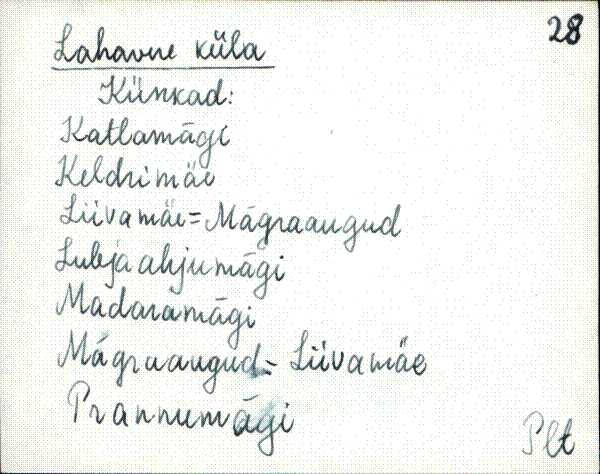 28
Lahavere küla
Künkad:
Katlamägi
Keldrimäe
Liivamäe = Mägraaugud
Lubjaahjumägi
Madaramägi
Mägraaugud = Liivamäe
Prannumägi
Plt